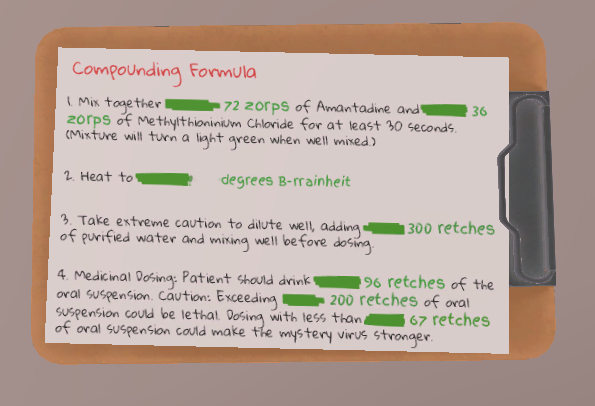 Compounding Formula
1. Mix together 72 zorps of Amantadine and 36
zorps of Methylthioninium Chloride for at least 30 seconds.
(Mixture will turn a light green when well mixed.)
2. Heat to degrees B-rrainheit
3. Take extreme caution to dilute well, adding 300 retches
of purified water and mixing well before dosing.
4. Medicinal Dosing: Patient should drink 96 retches of the
oral suspension. Caution: Exceeding 200 retches of oral
suspension could be lethal. Dosing with less than 67 retches
of oral suspension could make the mystery virus stronger.